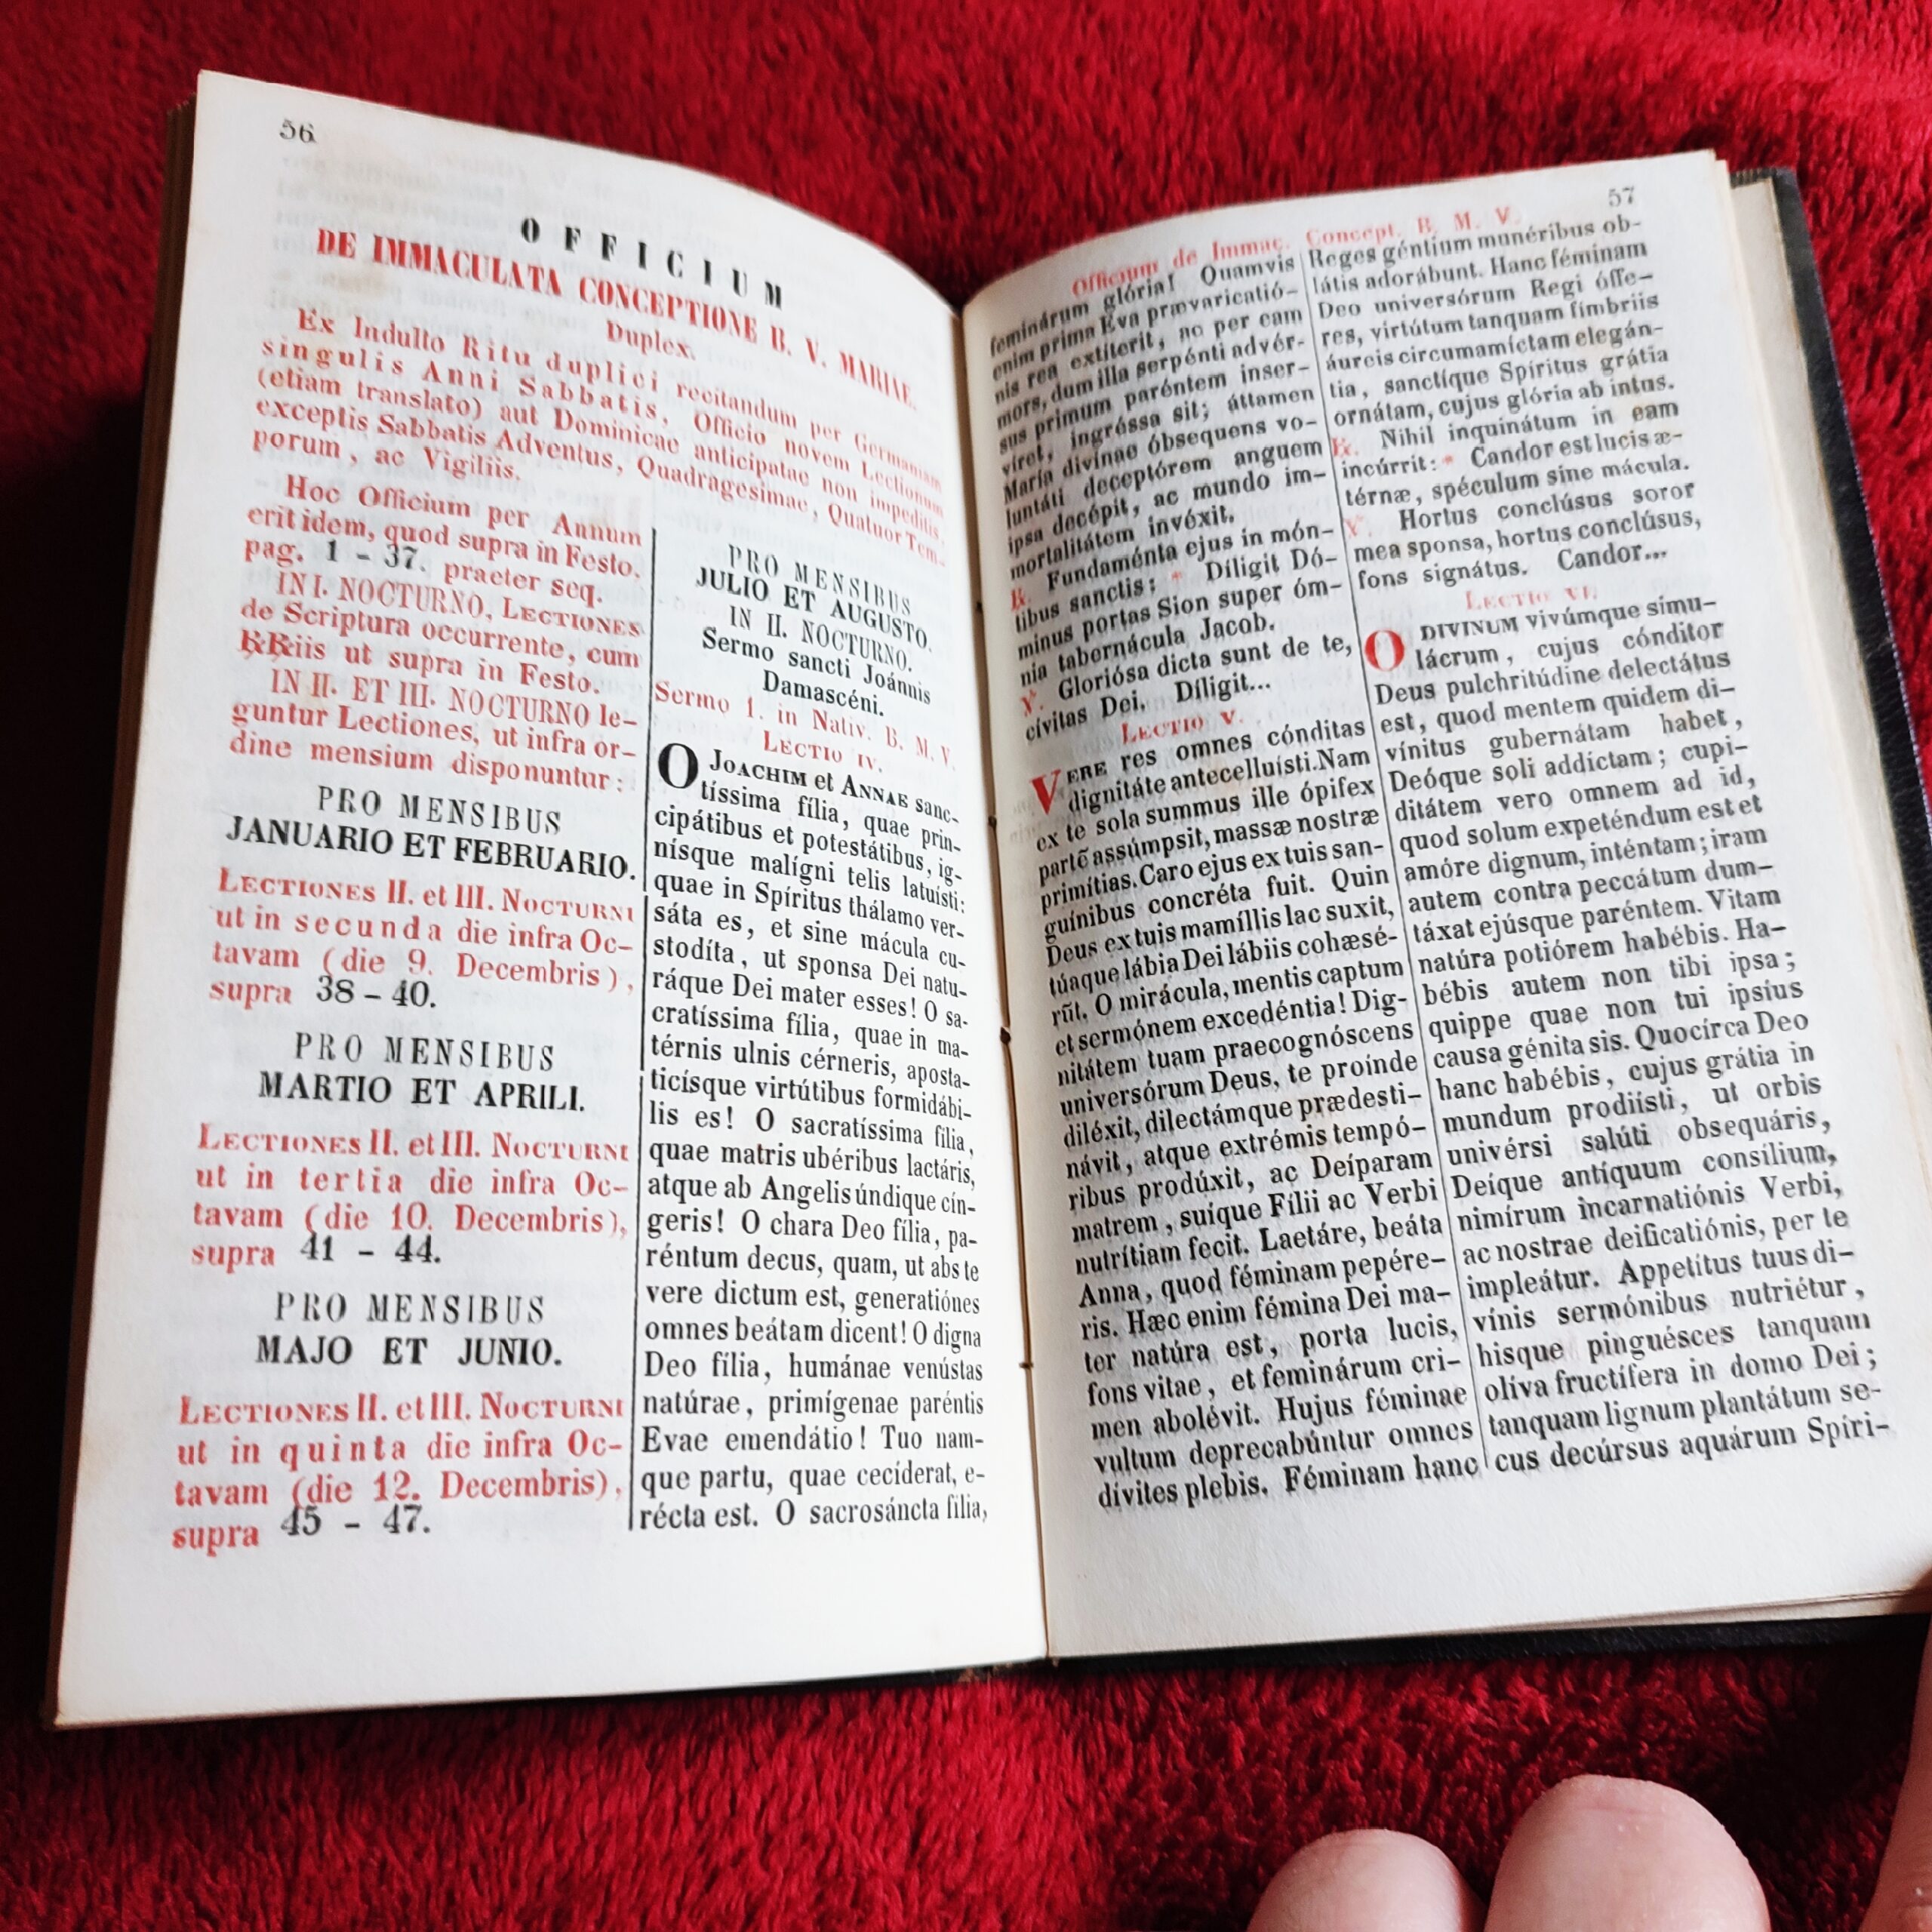 56
OFFICIUM
DE IMMACULATA CONCEPTIONE B. V. MARIAE.
Duplex.
Ex Indulto Ritu duplici recitandum per Germaniam
singulis Anni Sabbatis, Officio novem Lectionum
(etiam translato) aut Dominicae anticipatae non impeditis,
exceptis Sabbatis Adventus, Quadragesimae, Quatuor Tem-
porum, ac Vigiliis.
Hoc Officium per Annum
erit idem, quod supra in Festo,
pag. 1 - 37. praeter seq.
IN I. NOCTURNO, LECTIONES
de Scriptura occurrente, cum
℟℟iis ut supra in Festo.
IN II. ET III. NOCTURNO le-
guntur Lectiones, ut infra or-
dine mensium disponuntur:
PRO MENSIBUS
JANUARIO ET FEBRUARIO.
LECTIONES II. et III. NOCTURNI
ut in secunda die infra Oc-
tavam (die 9. Decembris),
supra 38 - 40.
PRO MENSIBUS
MARTIO ET APRILI.
LECTIONES II. et III. NOCTURNI
ut in tertia die infra Oc-
tavam (die 10. Decembris),
supra 41 - 44.
PRO MENSIBUS
MAJO ET JUNIO.
LECTIONES II. et III. NOCTURNI
ut in quinta die infra Oc-
tavam (die 12. Decembris),
supra 45 - 47.
PRO MENSIBUS
JULIO ET AUGUSTO.
IN II. NOCTURNO.
Sermo sancti Joánnis
Damascéni.
Sermo 1. in Nativ. B. M. V.
LECTIO IV.
O JOACHIM et ANNAE sanc-
tíssima fília, quae prin-
cipátibus et potestátibus, ig-
nísque malígni telis latuísti:
quae in Spíritus thálamo ver-
sáta es, et sine mácula cu-
stodíta, ut sponsa Dei natu-
ráque Dei mater esses! O sa-
cratíssima fília, quae in ma-
térnis ulnis cérneris, aposta-
ticísque virtútibus formidábi-
lis es! O sacratíssima fília,
quae matris ubéribus lactáris,
atque ab Angelis úndique cín-
geris! O chara Deo fília, pa-
réntum decus, quam, ut abs te
vere dictum est, generatiónes
omnes beátam dicent! O digna
Deo fília, humánae venústas
natúrae, primígenae paréntis
Evae emendátio! Tuo nam-
que partu, quae cecíderat, e-
récta est. O sacrosáncta fília,
57
Officium de Immac. Concept. B. M. V.
feminárum glória! Quamvis
enim prima Eva prævaricatió-
nis rea extíterit, ac per eam
mors, dum illa serpénti advér-
sus primum paréntem inser-
víret, ingréssa sit; áttamen
María divínae óbsequens vo-
luntáti deceptórem anguem
ipsa decépit, ac mundo im-
mortalitátem invéxit.
℟. Fundaménta ejus in món-
tibus sanctis: * Díligit Dó-
minus portas Sion super óm-
nia tabernácula Jacob.
℣. Gloriósa dicta sunt de te,
cívitas Dei. Díligit...
LECTIO V.
VERE res omnes cónditas
dignitáte antecelluísti. Nam
ex te sola summus ille ópifex
partē assúmpsit, massæ nostræ
primítias. Caro ejus ex tuis san-
guínibus concréta fuit. Quin
Deus ex tuis mamíllis lac suxit,
túaque lábia Dei lábiis cohæsé-
rūt. O mirácula, mentis captum
et sermónem excedéntia! Dig-
nitátem tuam praecognóscens
universórum Deus, te proínde
diléxit, dilectámque prædesti-
návit, atque extrémis tempó-
ribus prodúxit, ac Deíparam
matrem, suíque Fílii ac Verbi
nutrítiam fecit. Laetáre, beáta
Anna, quod féminam pepére-
ris. Hæc enim fémina Dei ma-
ter natúra est, porta lucis,
fons vitae, et feminárum cri-
men abolévit. Hujus féminae
vultum deprecabúntur omnes
dívites plebis. Féminam hanc
Reges géntium munéribus ob-
látis adorábunt. Hanc féminam
Deo universórum Regi óffe-
res, virtútum tanquam fímbriis
áureis circumamíctam elegán-
tia, sanctíque Spíritus grátia
ornátam, cujus glória ab intus.
℟. Nihil inquinátum in eam
incúrrit: * Candor est lucis æ-
térnæ, spéculum sine mácula.
℣. Hortus conclúsus soror
mea sponsa, hortus conclúsus,
fons signátus. Candor...
LECTIO VI.
O DIVINUM vivúmque simu-
lácrum, cujus cónditor
Deus pulchritúdine delectátus
est, quod mentem quidem di-
vínitus gubernátam habet,
Deóque soli addíctam; cupi-
ditátem vero omnem ad id,
quod solum expeténdum est et
amóre dignum, inténtam; iram
autem contra peccátum dum-
táxat ejúsque paréntem. Vitam
natúra potiórem habébis. Ha-
bébis autem non tibi ipsa;
quippe quae non tui ipsíus
causa génita sis. Quocírca Deo
hanc habébis, cujus grátia in
mundum prodiísti, ut orbis
univérsi salúti obsequáris,
Deíque antíquum consílium,
nimírum incarnatiónis Verbi,
ac nostrae deificatiónis, per te
impleátur. Appetítus tuus di-
vínis sermónibus nutriétur,
hisque pinguésces tanquam
olíva fructífera in domo Dei;
tanquam lignum plantátum se-
cus decúrsus aquárum Spíri-